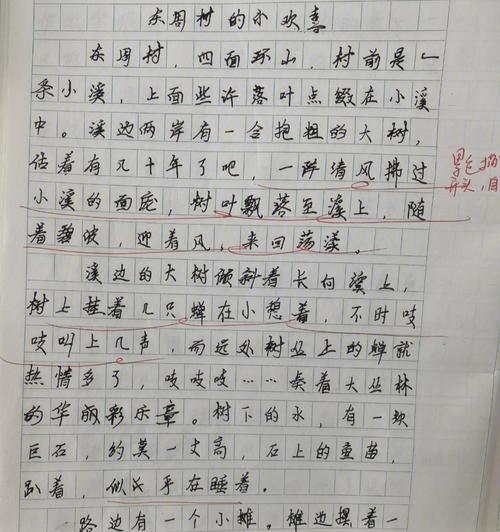 东周村的小欢喜
东周村，四面环山，村前是一
条小溪，上面些许落叶点缀在小溪
中。溪边两岸有一合抱粗的大树，
估着有几十年了吧，一阵清风拂过
小溪的面庞，树叶飘落至溪上，随
着碧波，迎着风，来回荡漾。
溪边的大树倾斜着长向溪上，
树上挂着几只蝉在小憩着，不时吱
吱叫上几声，而远处树丛上的蝉就
热情多了，吱吱吱……奏着大丛林
的华丽彩乐章。树下的水，有一块
巨石，约莫一丈高，石上的鱼苗，
趴着，似乎在睡着。
路边有一个小摊。摊边摆着一
景色描
开头，自